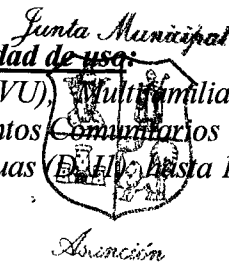 Junta Municipal
dad de uso:
VU), Multifamilia
ntos Comunitarios
uas (D.H), hasta
Asunción